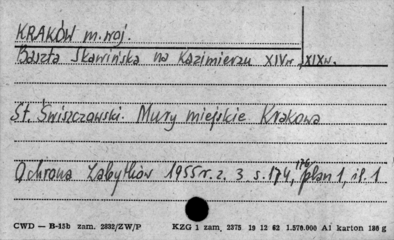 KRAKÓW m. woj.
Baszta Skawińska na Kazimierzu XIVw, XIXw.
St. Świszczowski. Mury miejskie Krakowa
Ochrona Zabytków 1955 r. z. 3 s. 174, 176, plan 1, il. 1
CWD — B-15b zam. 2832/ZW/P KZG 1 zam, 2375 19 12 62 1.570.000 A1 karton 180 g